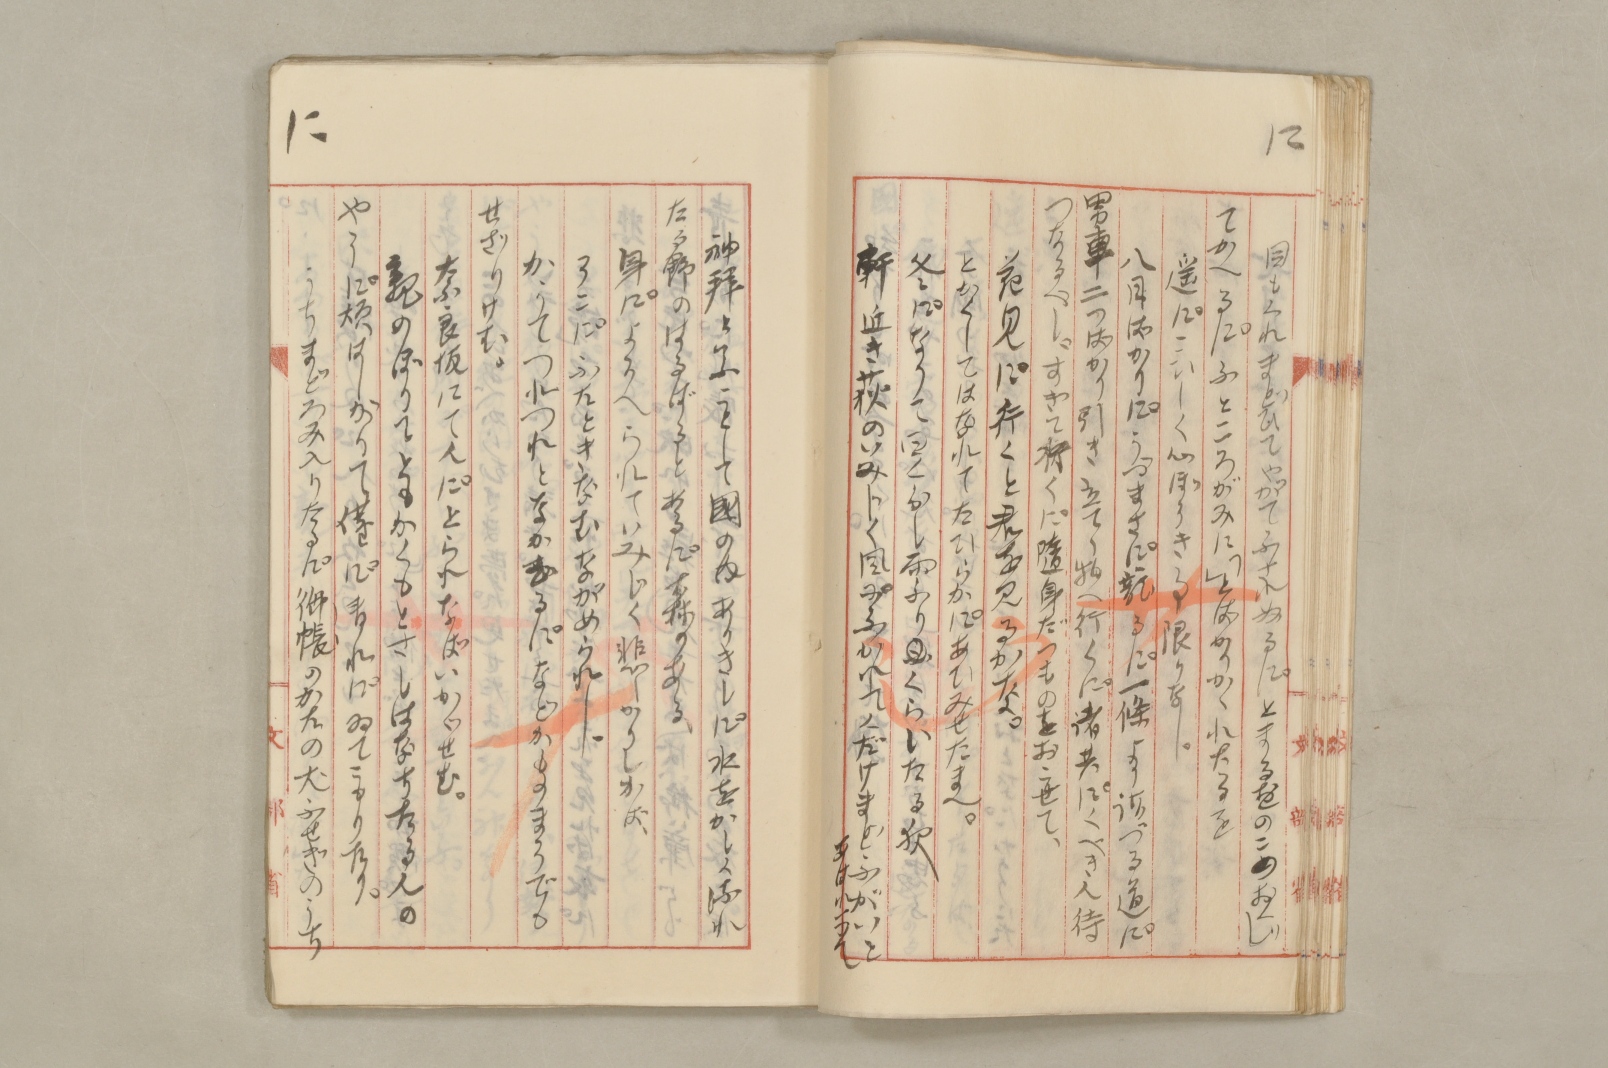 に
目もくれまどひてやがてふせぬるに。とまるをのこのおくり
てかへるに。ふところがみに「とばかりかくれたるを
遥に。こひしく心ぼそき事限りなし。
八月ばかりに。うづまさに。詣るに。一條より詣づる道に。
男車二つばかり引き立てて物へ行くに。諸共に。くべき人待
つなるべし。すぎて行くに。隨身だつものをおこせて、
花見に。行くと君を見るかな。
とかくしてはなれてたひらかに。あひみせたまへ。
冬に。なりて日ぐらし雨ふりくらいたる夜
軒近き荻のいみじく風にふかれてくだけまどふがいと
あはれにて
に
神拜といふことして國の内ありきしに。水をかしく流れ
たる野のはるばるとあるに。木森のある
身に。よそへられていみじく悲しかりしかば、
そこに。ふたときなむながめられし。
かうてつれづれとながむるに。などかものまうでも
せざりけむ。
奈良坂にて人に。とられなばいかがせむ。
親のぼりてともかくもとさしはなちたる人の
やうに。煩はしがりて僅に。清水に。ゐてこもりたり。
うちまどろみ入りたるに。御帳のかたの犬ふせぎのうち
文部省